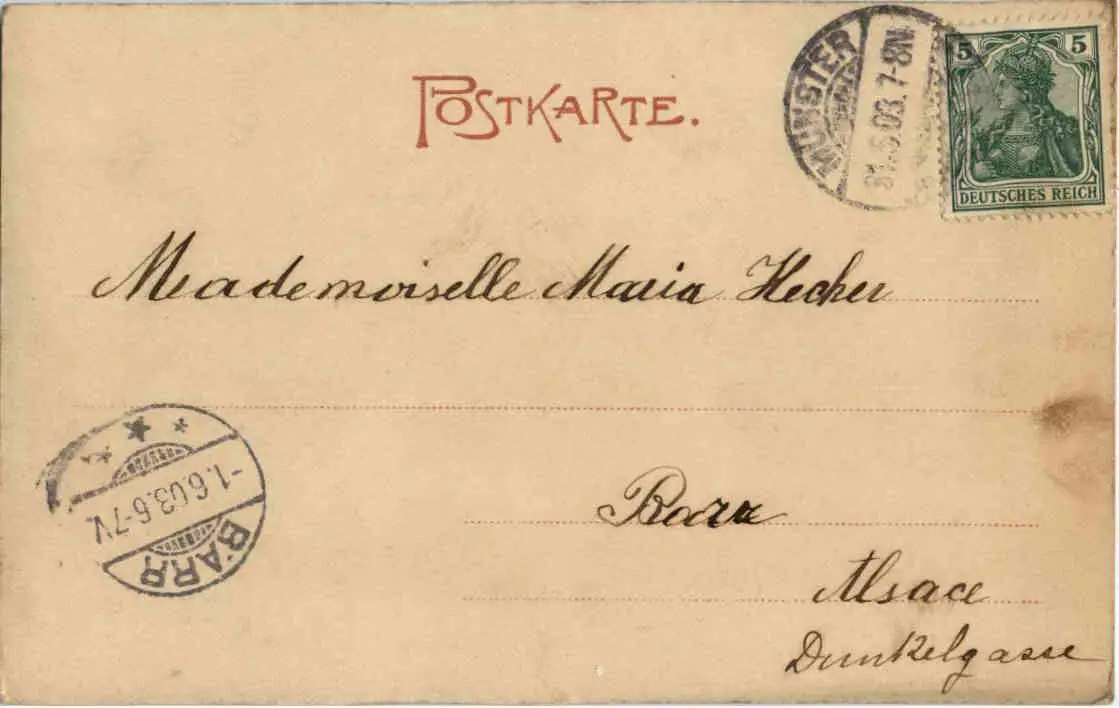 POSTKARTE.
MÜNSTER
31.5.03. 7-8N.
5 5
DEUTSCHES REICH
Meademoiselle Maria Hecker
BARR
-1.6.03.6-7V.
Barr
Alsace
Dunkelgasse